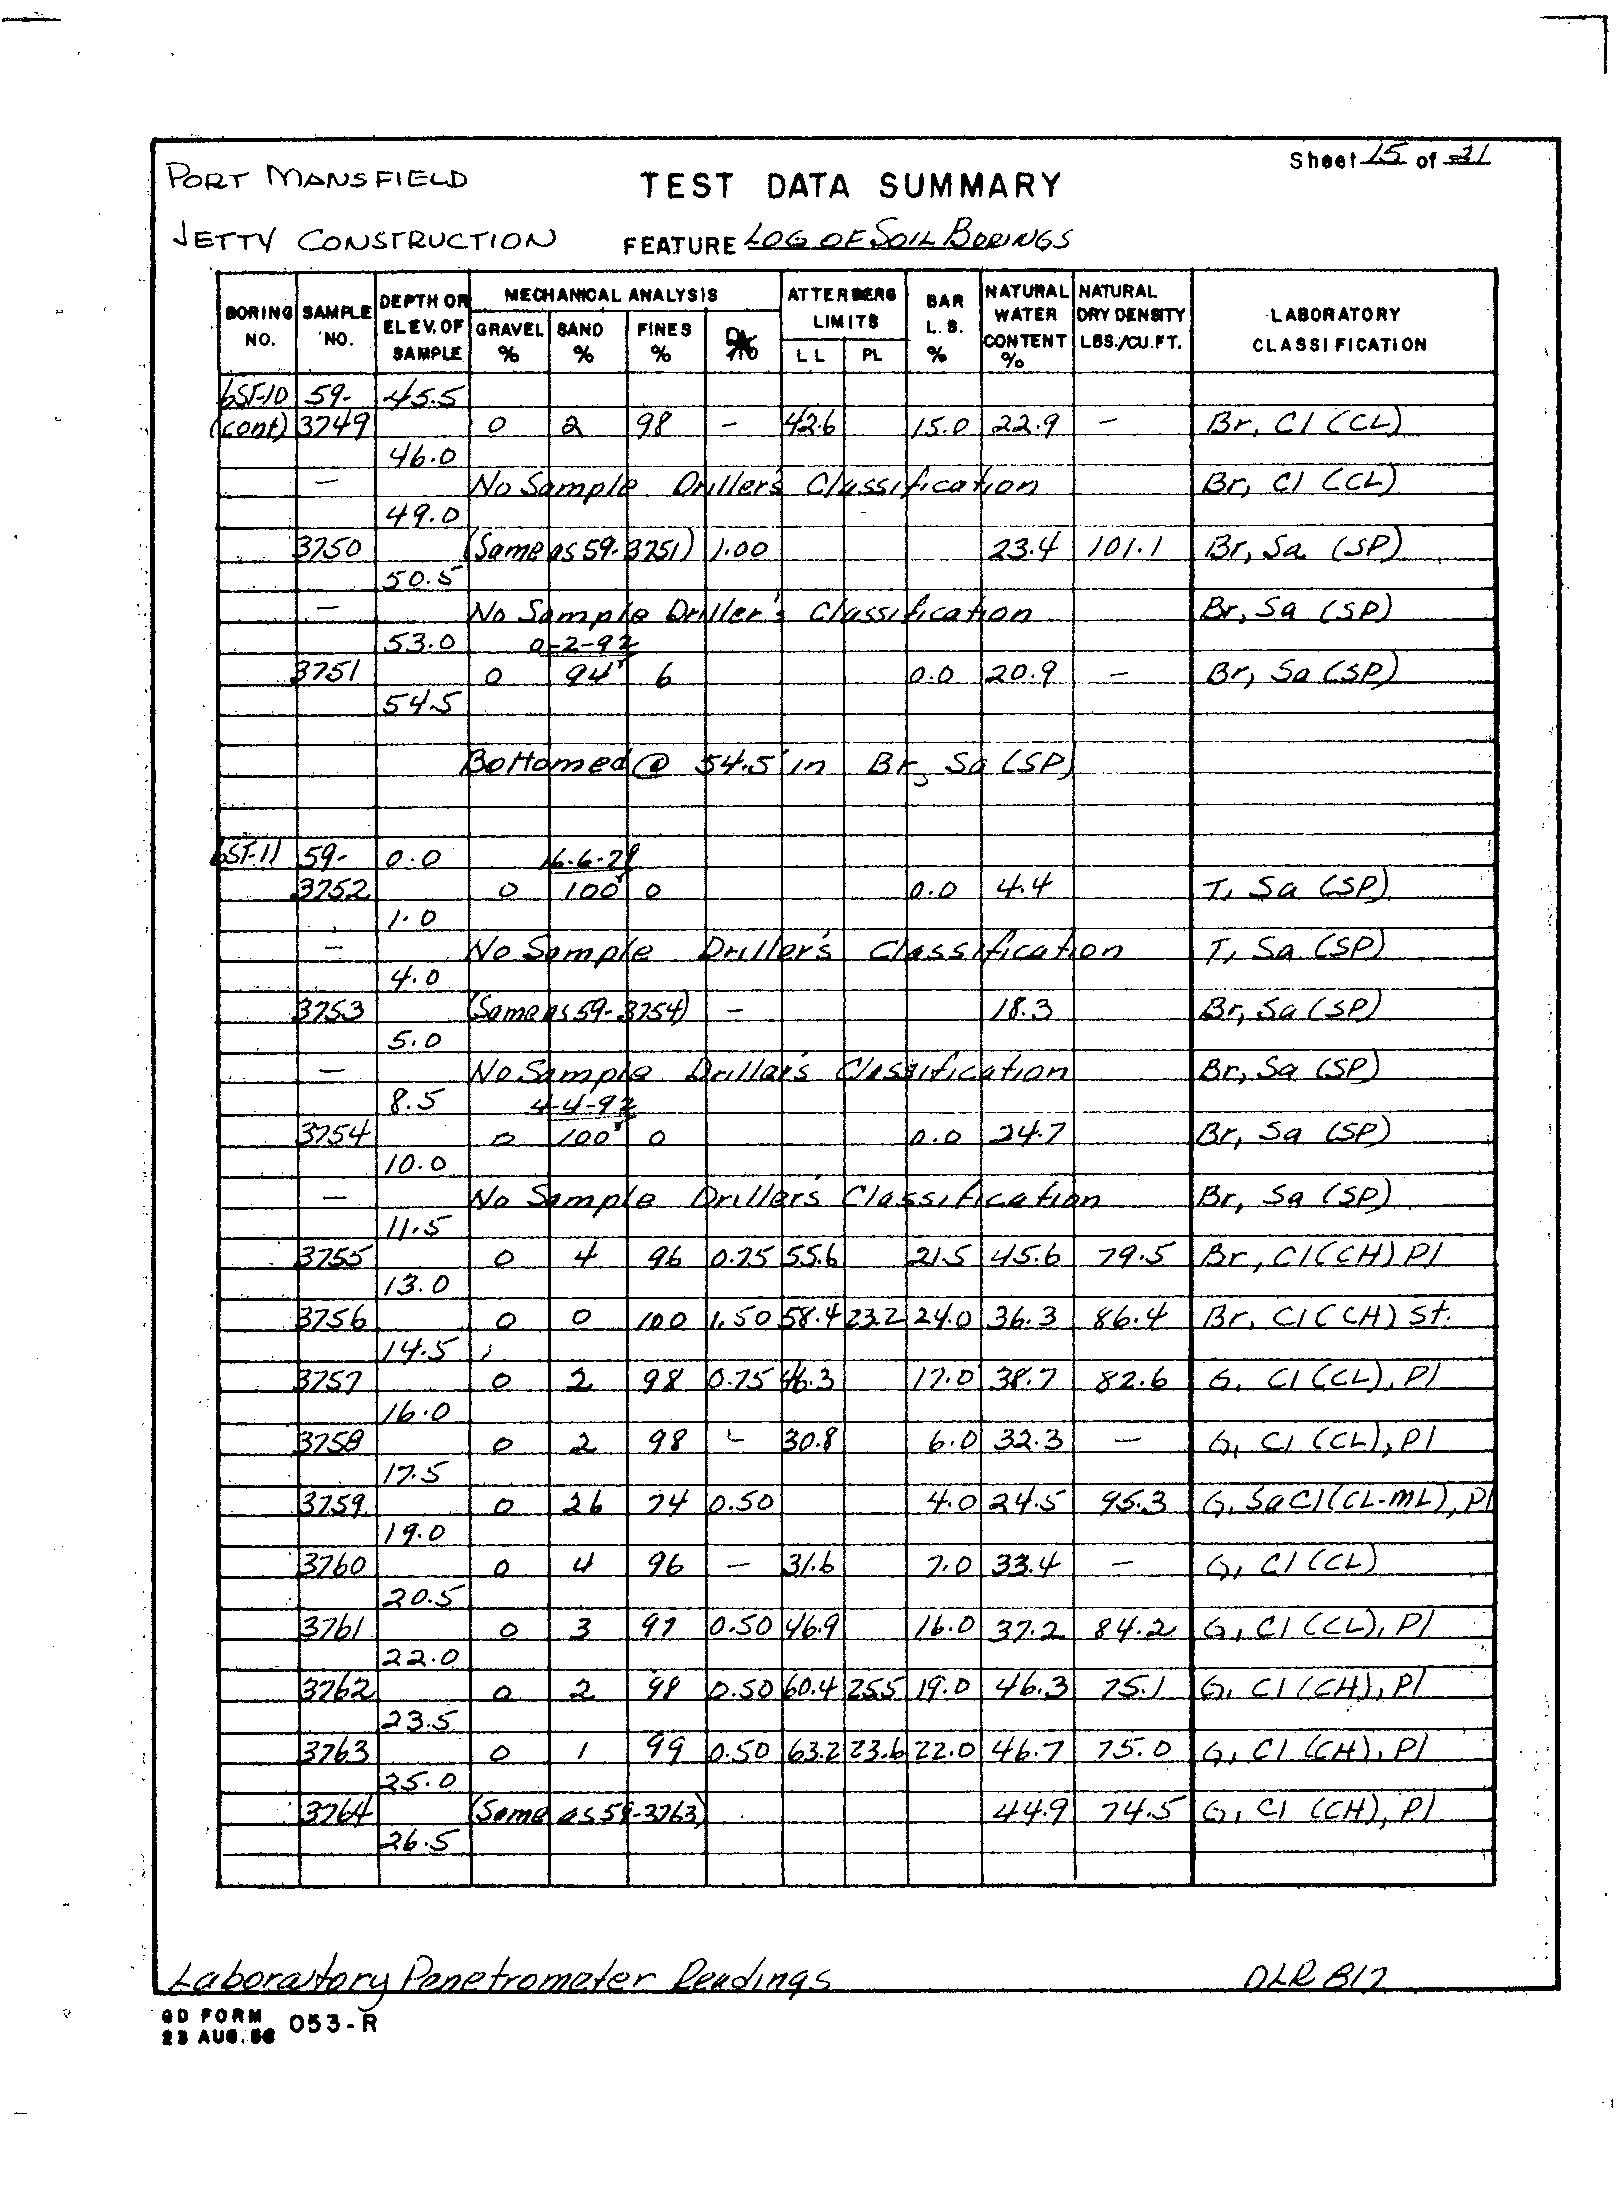 Sheet 15 of 31
PORT MANSFIELD
TEST DATA SUMMARY
JETTY CONSTRUCTION FEATURE LOG OF SOIL BORINGS
BORING NO. SAMPLE NO. DEPTH OR ELEV. OF SAMPLE MECHANICAL ANALYSIS GRAVEL % SAND % FINES % ATTERBERG LIMITS LL PL BAR L.S. % NATURAL WATER CONTENT % NATURAL DRY DENSITY LBS./CU.FT. LABORATORY CLASSIFICATION
6ST-10 59- 45.5
(cont) 3749 0 2 98 - 42.6 15.0 22.9 - Br, Cl (CL)
46.0
- No Sample Driller's Classification Br, Cl (CL)
49.0
3750 (Same as 59-3751) 1.00 23.4 101.1 Br, Sa (SP)
50.5
- No Sample Driller's Classification Br, Sa (SP)
53.0 0-2-92
3751 0 94 6 0.0 20.9 - Br, Sa (SP)
54.5
Bottomed @ 54.5 in Br, Sa (SP)
6ST-11 59- 0.0
3752 0 100 0 0.0 4.4 T, Sa (SP)
1.0
- No Sample Driller's Classification T, Sa (SP)
4.0
3753 (Same as 59-3754) - 18.3 Br, Sa (SP)
5.0
- No Sample Driller's Classification Br, Sa (SP)
8.5 4-4-92
3754 0 100 0 0.0 24.7 Br, Sa (SP)
10.0
- No Sample Driller's Classification Br, Sa (SP)
11.5
3755 0 4 96 0.75 55.6 21.5 45.6 79.5 Br, Cl (CH) Pl
13.0
3756 0 0 100 1.50 58.4 23.2 24.0 36.3 86.4 Br, Cl (CH) St.
14.5
3757 0 2 98 0.75 46.3 17.0 38.7 82.6 G, Cl (CL), Pl
16.0
3758 0 2 98 - 30.8 6.0 32.3 - G, Cl (CL), Pl
17.5
3759 0 26 74 0.50 4.0 24.5 95.3 G, Sa Cl (CL-ML), Pl
19.0
3760 0 4 96 - 31.6 7.0 33.4 - G, Cl (CL)
20.5
3761 0 3 97 0.50 46.9 16.0 37.2 84.2 G, Cl (CL), Pl
22.0
3762 0 2 98 0.50 60.4 25.5 19.0 46.3 75.1 G, Cl (CH), Pl
23.5
3763 0 1 99 0.50 63.2 23.6 22.0 46.7 75.0 G, Cl (CH), Pl
25.0
3764 (Same as 59-3763) 44.9 74.5 G, Cl (CH), Pl
26.5
Laboratory Penetrometer Readings DLR 817
GD FORM 053-R
23 AUG. 56